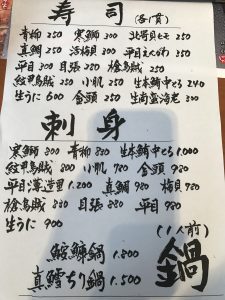 寿司 (各1貫)
青柳 250 寒鰤 300 北寄貝 250
真鯛 250 活梅貝 300 平目えんがわ 250
平目 300 目張 250 槍烏賊 250
紋甲烏賊 250 小肌 250 生本鮪中とろ 240
生うに 600 金頭 250 生南蛮海老 300
刺身
寒鰤 800 青柳 880 生本鮪中とろ 1.000
紋甲烏賊 880 小肌 780 金頭 980
平目薄造里 1.200 真鯛 980 梅貝 780
槍烏賊 880 目張 880 平目 980
生うに 900
(1人前)
鍋
鮟鱇鍋 1.800
真鱈ちり鍋 1.500